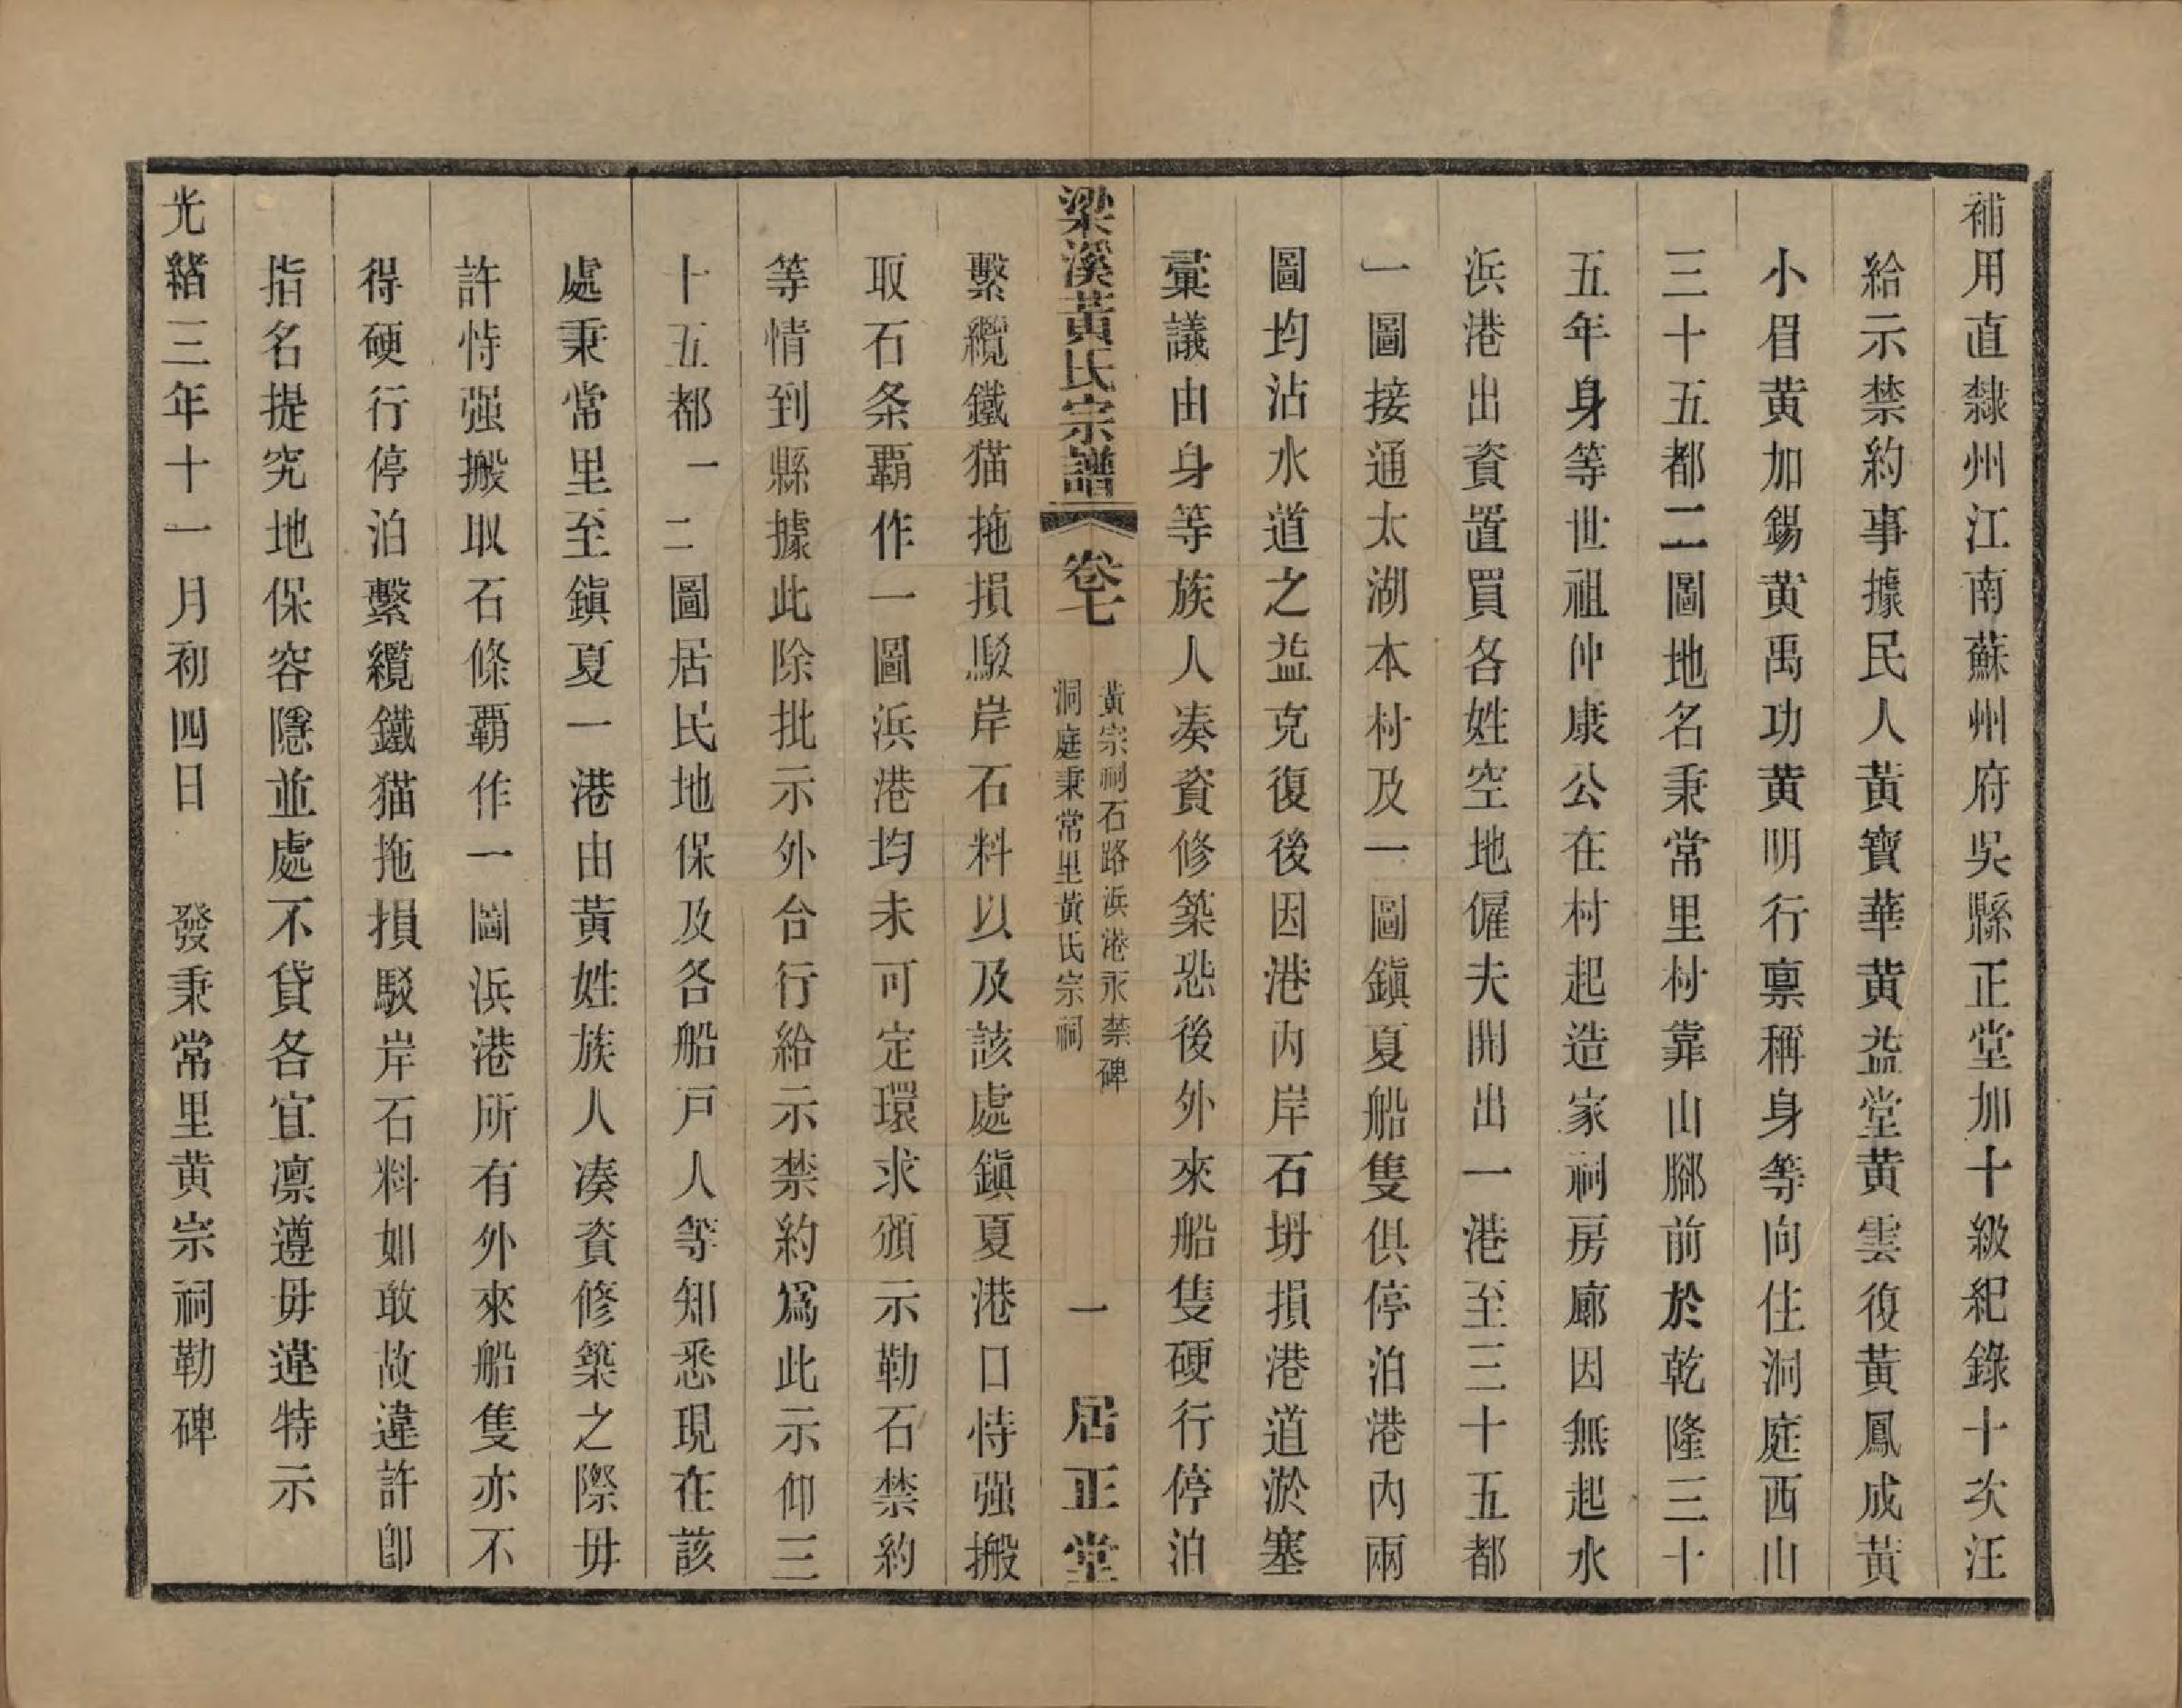 補用直隸州江南蘇州府吳縣正堂加十級紀錄十次汪
給示禁約事據民人黃寶華黃益堂黃雲復黃鳳成黃
小眉黃加錫黃禹功黃明行稟稱身等向住洞庭西山
三十五都二圖地名秉常里村靠山腳前於乾隆三十
五年身等世祖仲康公在村起造家祠房廊因無起水
浜港出資置買各姓空地僱夫開出一港至三十五都
一圖接通太湖本村及一圖鎭夏船隻俱停泊港內兩
圖均沾水道之益克復後因港內岸石坍損港道淤塞
彙議由身等族人凑資修築恐後外來船隻硬行停泊
梁溪黃氏宗譜 卷七 黃宗祠石路浜港永禁碑 洞庭秉常里黃氏宗祠 一 居正堂
繫纜鐵猫拖損駁岸石料以及該處鎭夏港口恃强搬
取石条覇作一圖浜港均未可定環求頒示勒石禁約
等情到縣據此除批示外合行給示禁約爲此示仰三
十五都一二圖居民地保及各船戸人等知悉現在該
處秉常里至鎭夏一港由黃姓族人凑資修築之際毋
許恃强搬取石條覇作一圖浜港所有外來船隻亦不
得硬行停泊繫纜鐵猫拖損駁岸石料如敢故違許卽
指名提究地保容隱並處不貸各宜凛遵毋違特示
光緒三年十一月初四日 發秉常里黃宗祠勒碑